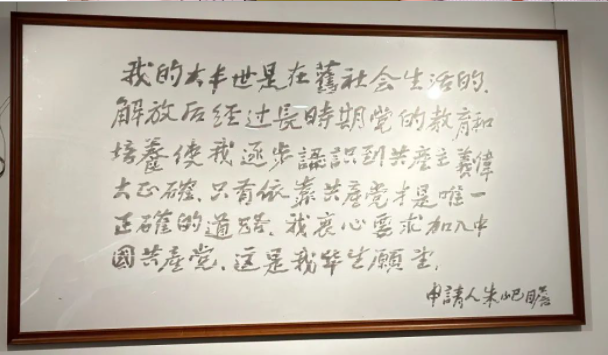 我的大半世是在舊社会生活的、
解放后经过長時期党的教育和
培養使我逐步認識到共產主義偉
大正確、只有依靠共產党才是唯一
正確的道路、我衷心要求加入中
國共產党、这是我毕生願望、
申請人朱屺瞻